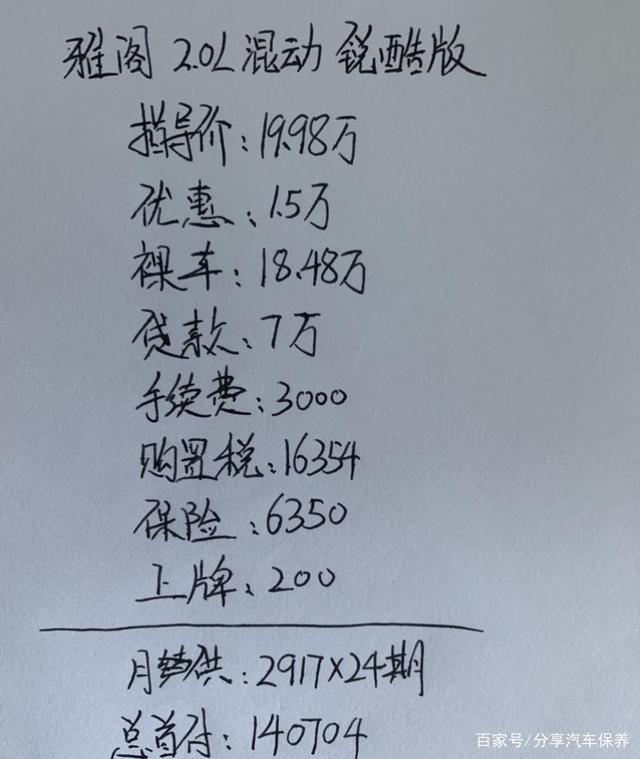 雅阁 2.0L 混动 锐酷版
指导价：19.98万
优惠：1.5万
裸车：18.48万
贷款：7万
手续费：3000
购置税：16354
保险：6350
上牌：200
月供：2917×24期
总首付：140704
百家号/分享汽车保养